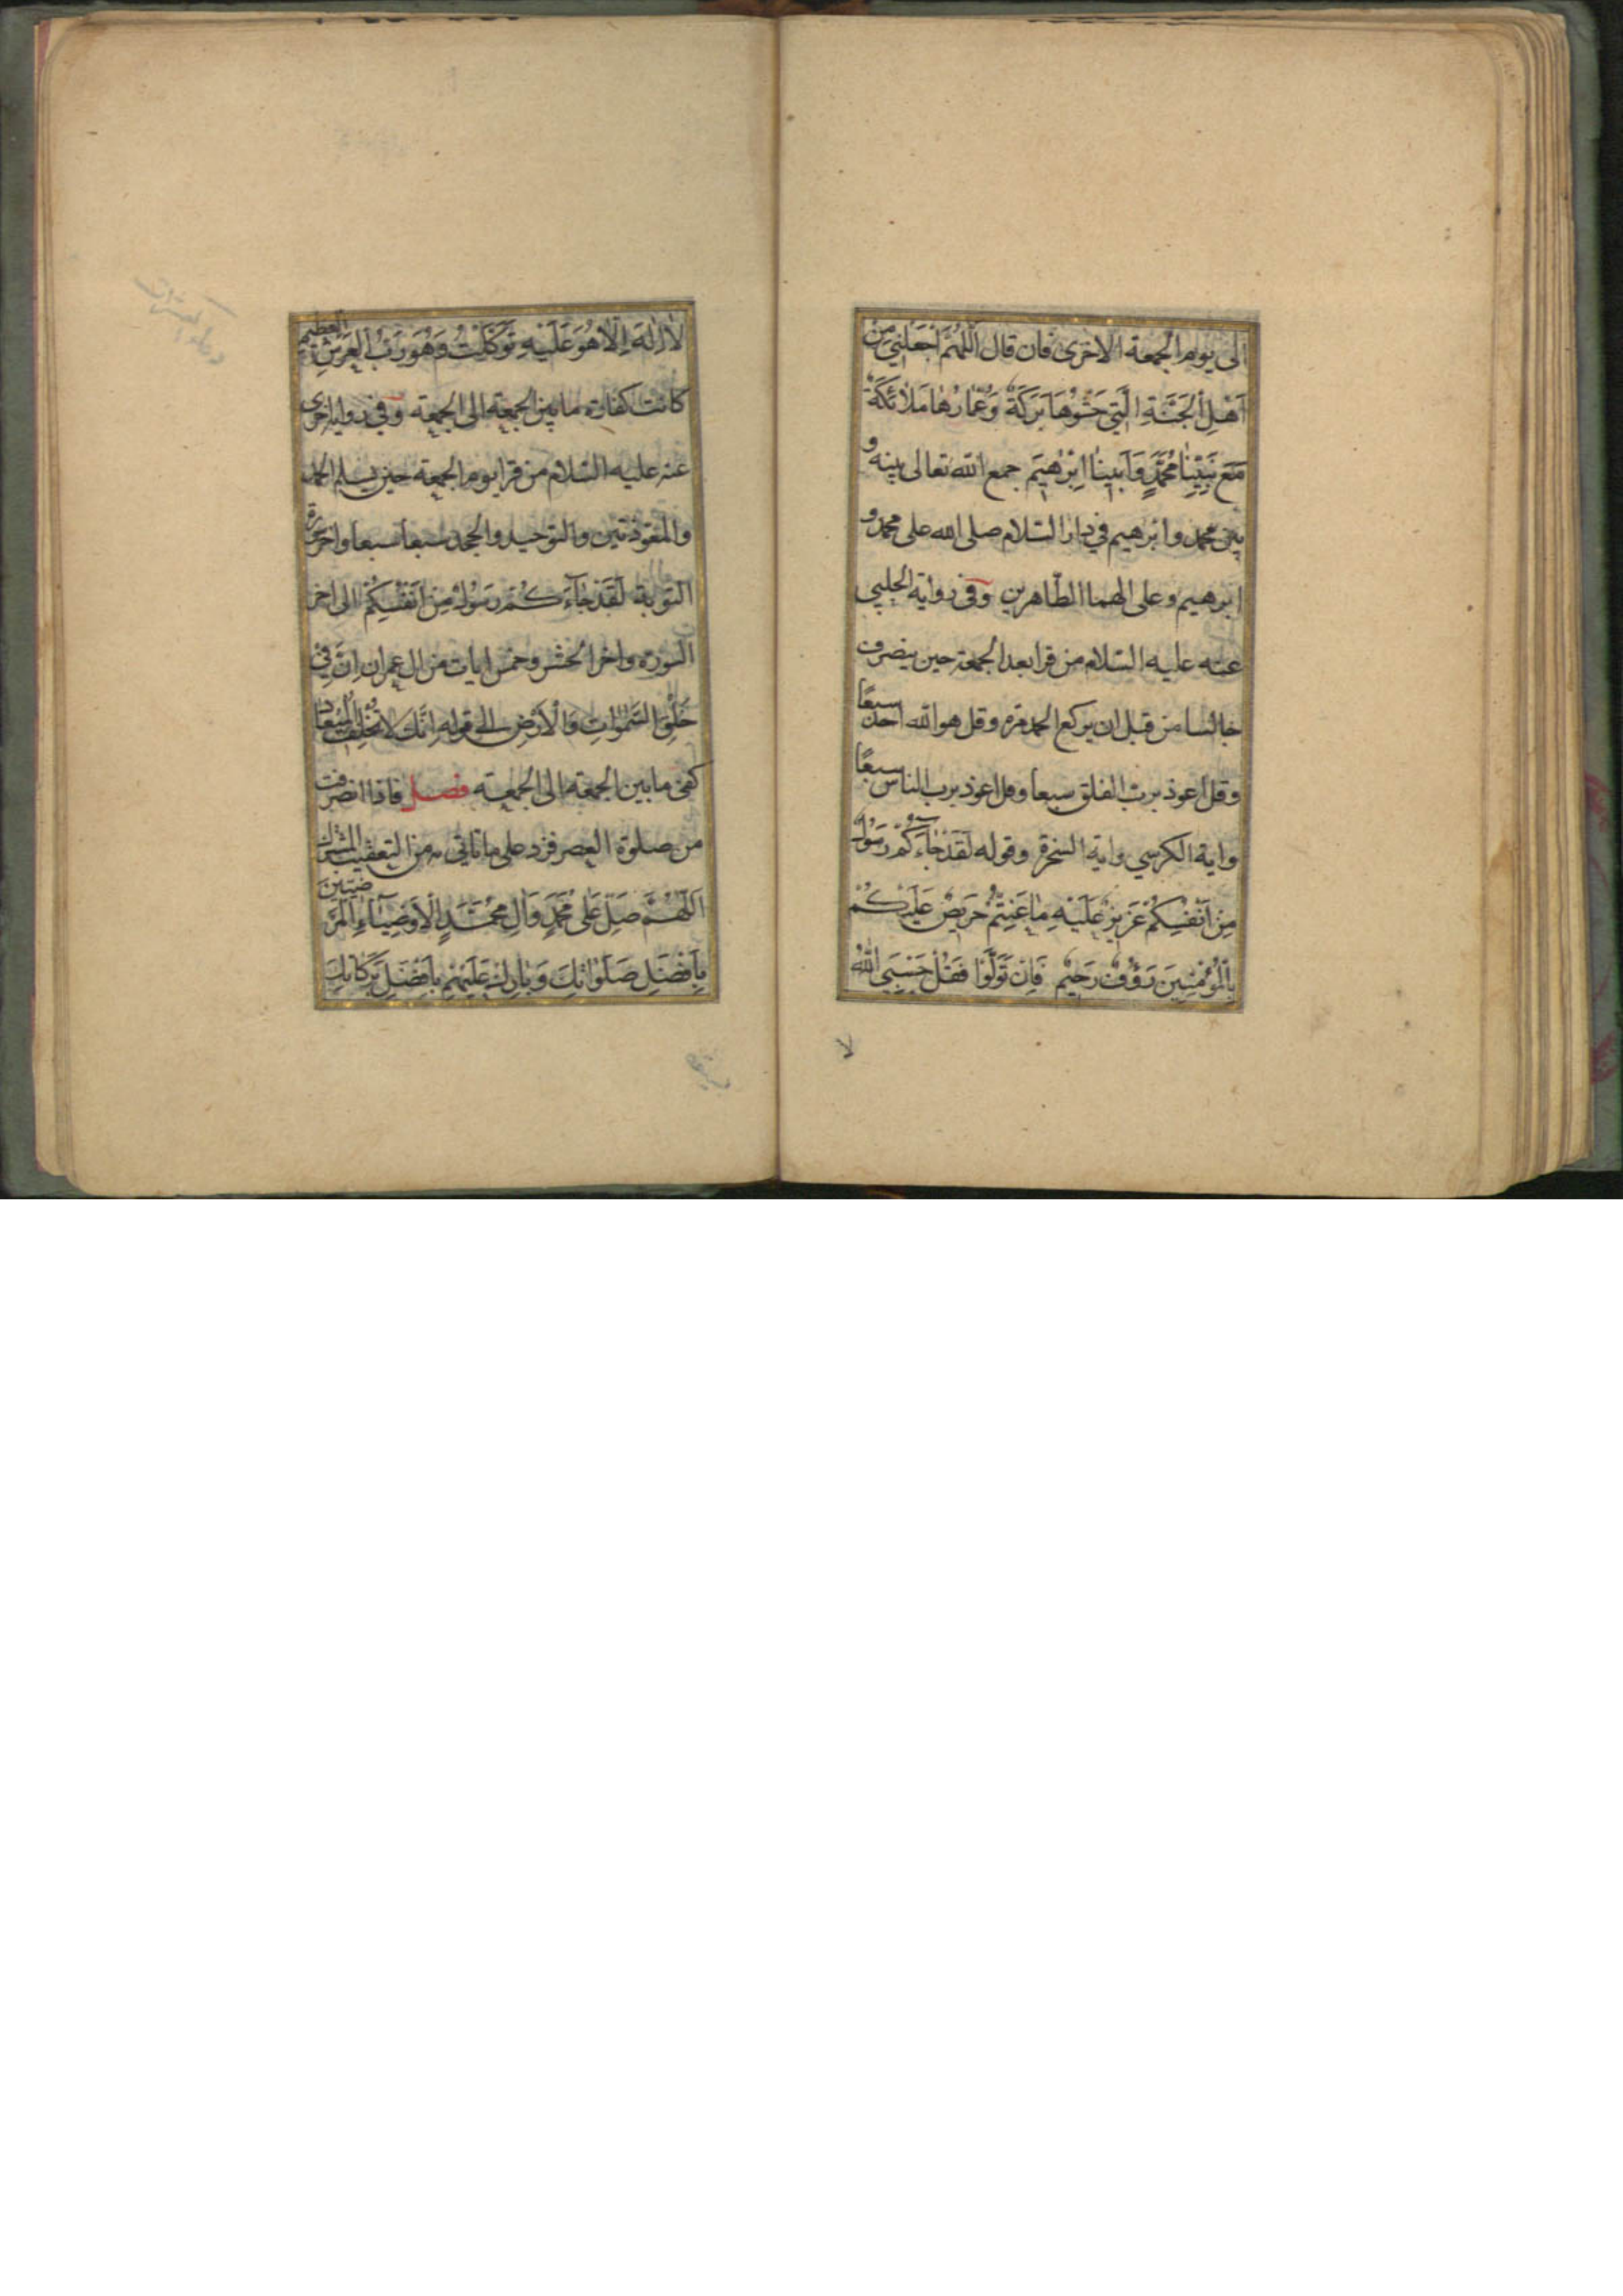 الى يوم الجمعة الاخرى فان قال اَللّٰهُمَّ اجْعَلْنِي مِنْ
اَهْلِ الْجَنَّةِ الَّتِي حَشْوُهَا بَرَكَةٌ وَعُمّارُهٰا مَلاٰئِكَةٌ
مَعَ نَبِيِّنٰا مُحَمَّدٍ وَاَبِينٰا اِبْرٰهِيمَ جمع الله تعالى بينه و
بين محمد وابرهيم في دار السلام صلى الله على محمد و
ابرهيم وعلى الهما الطّاهرين وفى رواية الحلبي
عنه عليه السّلام من قرا بعد الجمعة حين ينصرف
جالسا من قبل ان يركع الحمد مرة وقل هو الله احد سبعًا
وقل اعوذ بربّ الفلق سبعا وقل اعوذ برب الناس سبعًا
واية الكرسي واية السخرة وقوله لَقَدْ جٰاءَكُمْ رَسُولٌ
مِنْ اَنْفُسِكُمْ عَزِيزٌ عَلَيْهِ مٰا عَنِتُّمْ حَرِيصٌ عَلَيْكُمْ
بِالْمُؤْمِنِينَ رَؤُفٌ رَحِيمٌ فَاِنْ تَوَلَّوْا فَقُلْ حَسْبِيَ اللّٰهُ
لا
لاٰ اِلٰهَ اِلّاٰ هُوَ عَلَيْهِ تَوَكَّلْتُ وَهُوَ رَبُّ الْعَرْشِ العظيم
كانت كفارة ما بين الجمعة الى الجمعة وفي رواية اخرى
عنه عليه السّلام من قرا يوم الجمعة حين يسلم الحمد
والمعوّذتين والتوحيد والجحد سبعا سبعا واخر
التّوبة لَقَدْ جٰاءَكُمْ رَسُولٌ مِنْ اَنْفُسِكُمْ الى اخر
السّورة واخر الحشر وخمس ايات من ال عمران اِنَّ فِي
خَلْقِ السَّمٰوٰاتِ وَالْاَرْضِ الى قوله اِنَّكَ لاٰ تُخْلِفُ الْمِيعٰادَ
كفى ما بين الجمعة الى الجمعة فصل فاذا انصرفت
من صلوة العصر فزد على ما تاتي به من التعقيب المشترك
اَللّٰهُمَّ صَلِّ عَلىٰ مُحَمَّدٍ وَاٰلِ مُحَمَّدٍ الْاَوْصِيٰاءِ الْمَرْضِيّينَ
بِاَفْضَلِ صَلَوٰاتِكَ وَبٰارِكْ عَلَيْهِمْ بِاَفْضَلِ بَرَكٰاتِكَ